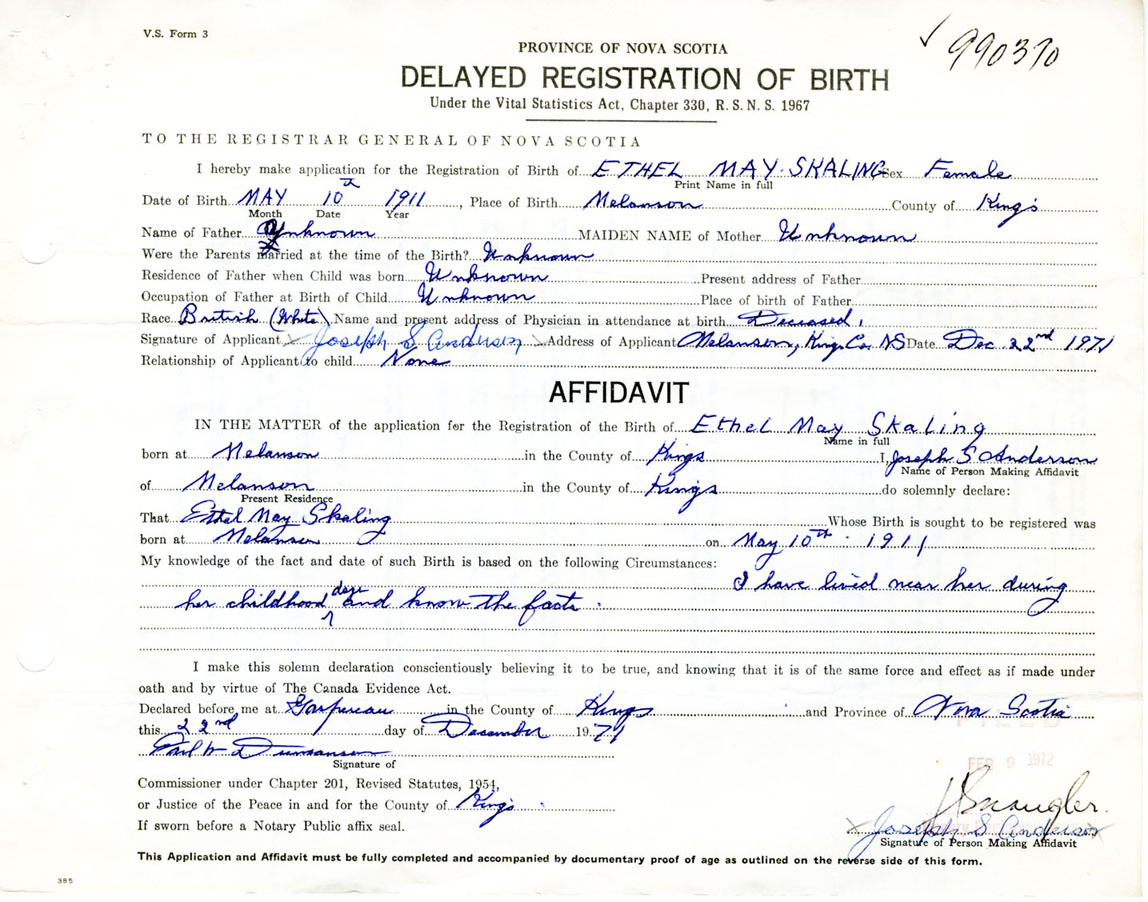 V.S. Form 3
✓ 990370
PROVINCE OF NOVA SCOTIA
DELAYED REGISTRATION OF BIRTH
Under the Vital Statistics Act, Chapter 330, R. S. N. S. 1967
TO THE REGISTRAR GENERAL OF NOVA SCOTIA
I hereby make application for the Registration of Birth of ETHEL MAY SKALING Sex Female
Print Name in full
Date of Birth MAY 10th 1911, Place of Birth Melanson County of Kings
Month Date Year
Name of Father Unknown MAIDEN NAME of Mother Unknown
Were the Parents married at the time of the Birth? Unknown
Residence of Father when Child was born Unknown Present address of Father
Occupation of Father at Birth of Child Unknown Place of birth of Father
Race British (White) Name and present address of Physician in attendance at birth Deceased.
Signature of Applicant Joseph S Anderson Address of Applicant Melanson, Kings Co. NS Date Dec 22nd 1971
Relationship of Applicant to child None
AFFIDAVIT
IN THE MATTER of the application for the Registration of the Birth of Ethel May Skaling
Name in full
born at Melanson in the County of Kings I, Joseph S Anderson
Name of Person Making Affidavit
of Melanson in the County of Kings do solemnly declare:
Present Residence
That Ethel May Skaling Whose Birth is sought to be registered was
born at Melanson on May 10th 1911
My knowledge of the fact and date of such Birth is based on the following Circumstances:
I have lived near her during
her childhood days and know the facts.
I make this solemn declaration conscientiously believing it to be true, and knowing that it is of the same force and effect as if made under
oath and by virtue of The Canada Evidence Act.
Declared before me at Gaspereau in the County of Kings and Province of Nova Scotia
this 22nd day of December 1971
Signature of
FEB 9 1972
Commissioner under Chapter 201, Revised Statutes, 1954,
or Justice of the Peace in and for the County of Kings
If sworn before a Notary Public affix seal.
Joseph S Anderson
Signature of Person Making Affidavit
This Application and Affidavit must be fully completed and accompanied by documentary proof of age as outlined on the reverse side of this form.
385